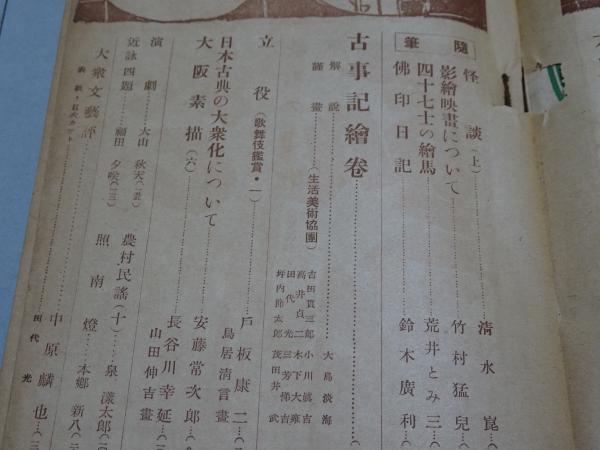 隨筆
怪談(上)……清水崑(
影繪映畫について……竹村猛兒(
四十七士の繪馬……荒井とみ三(
佛印日記……鈴木廣利(
古事記繪卷……(
解說……大島淡海
謹畫……(生活美術協團)
吉田貫三郎 小川眞吉
高井貞二 木下大雍
田代光 三芳悌吉
坪內節太郎 茂田井武
立役(歌舞伎鑑賞・一)……戶板康二(
鳥居清言畫
日本古典の大衆化について……安藤常次郎(
大阪素描(六)……長谷川幸延(
山田伸吉畫
演劇……大山秋天(
農村民謠(十)……泉漾太郎(
近詠四題……福田夕咲(
照南燈……本鄉新八(
大衆文藝評……中原麟也(
表紙・目次カット……田代光